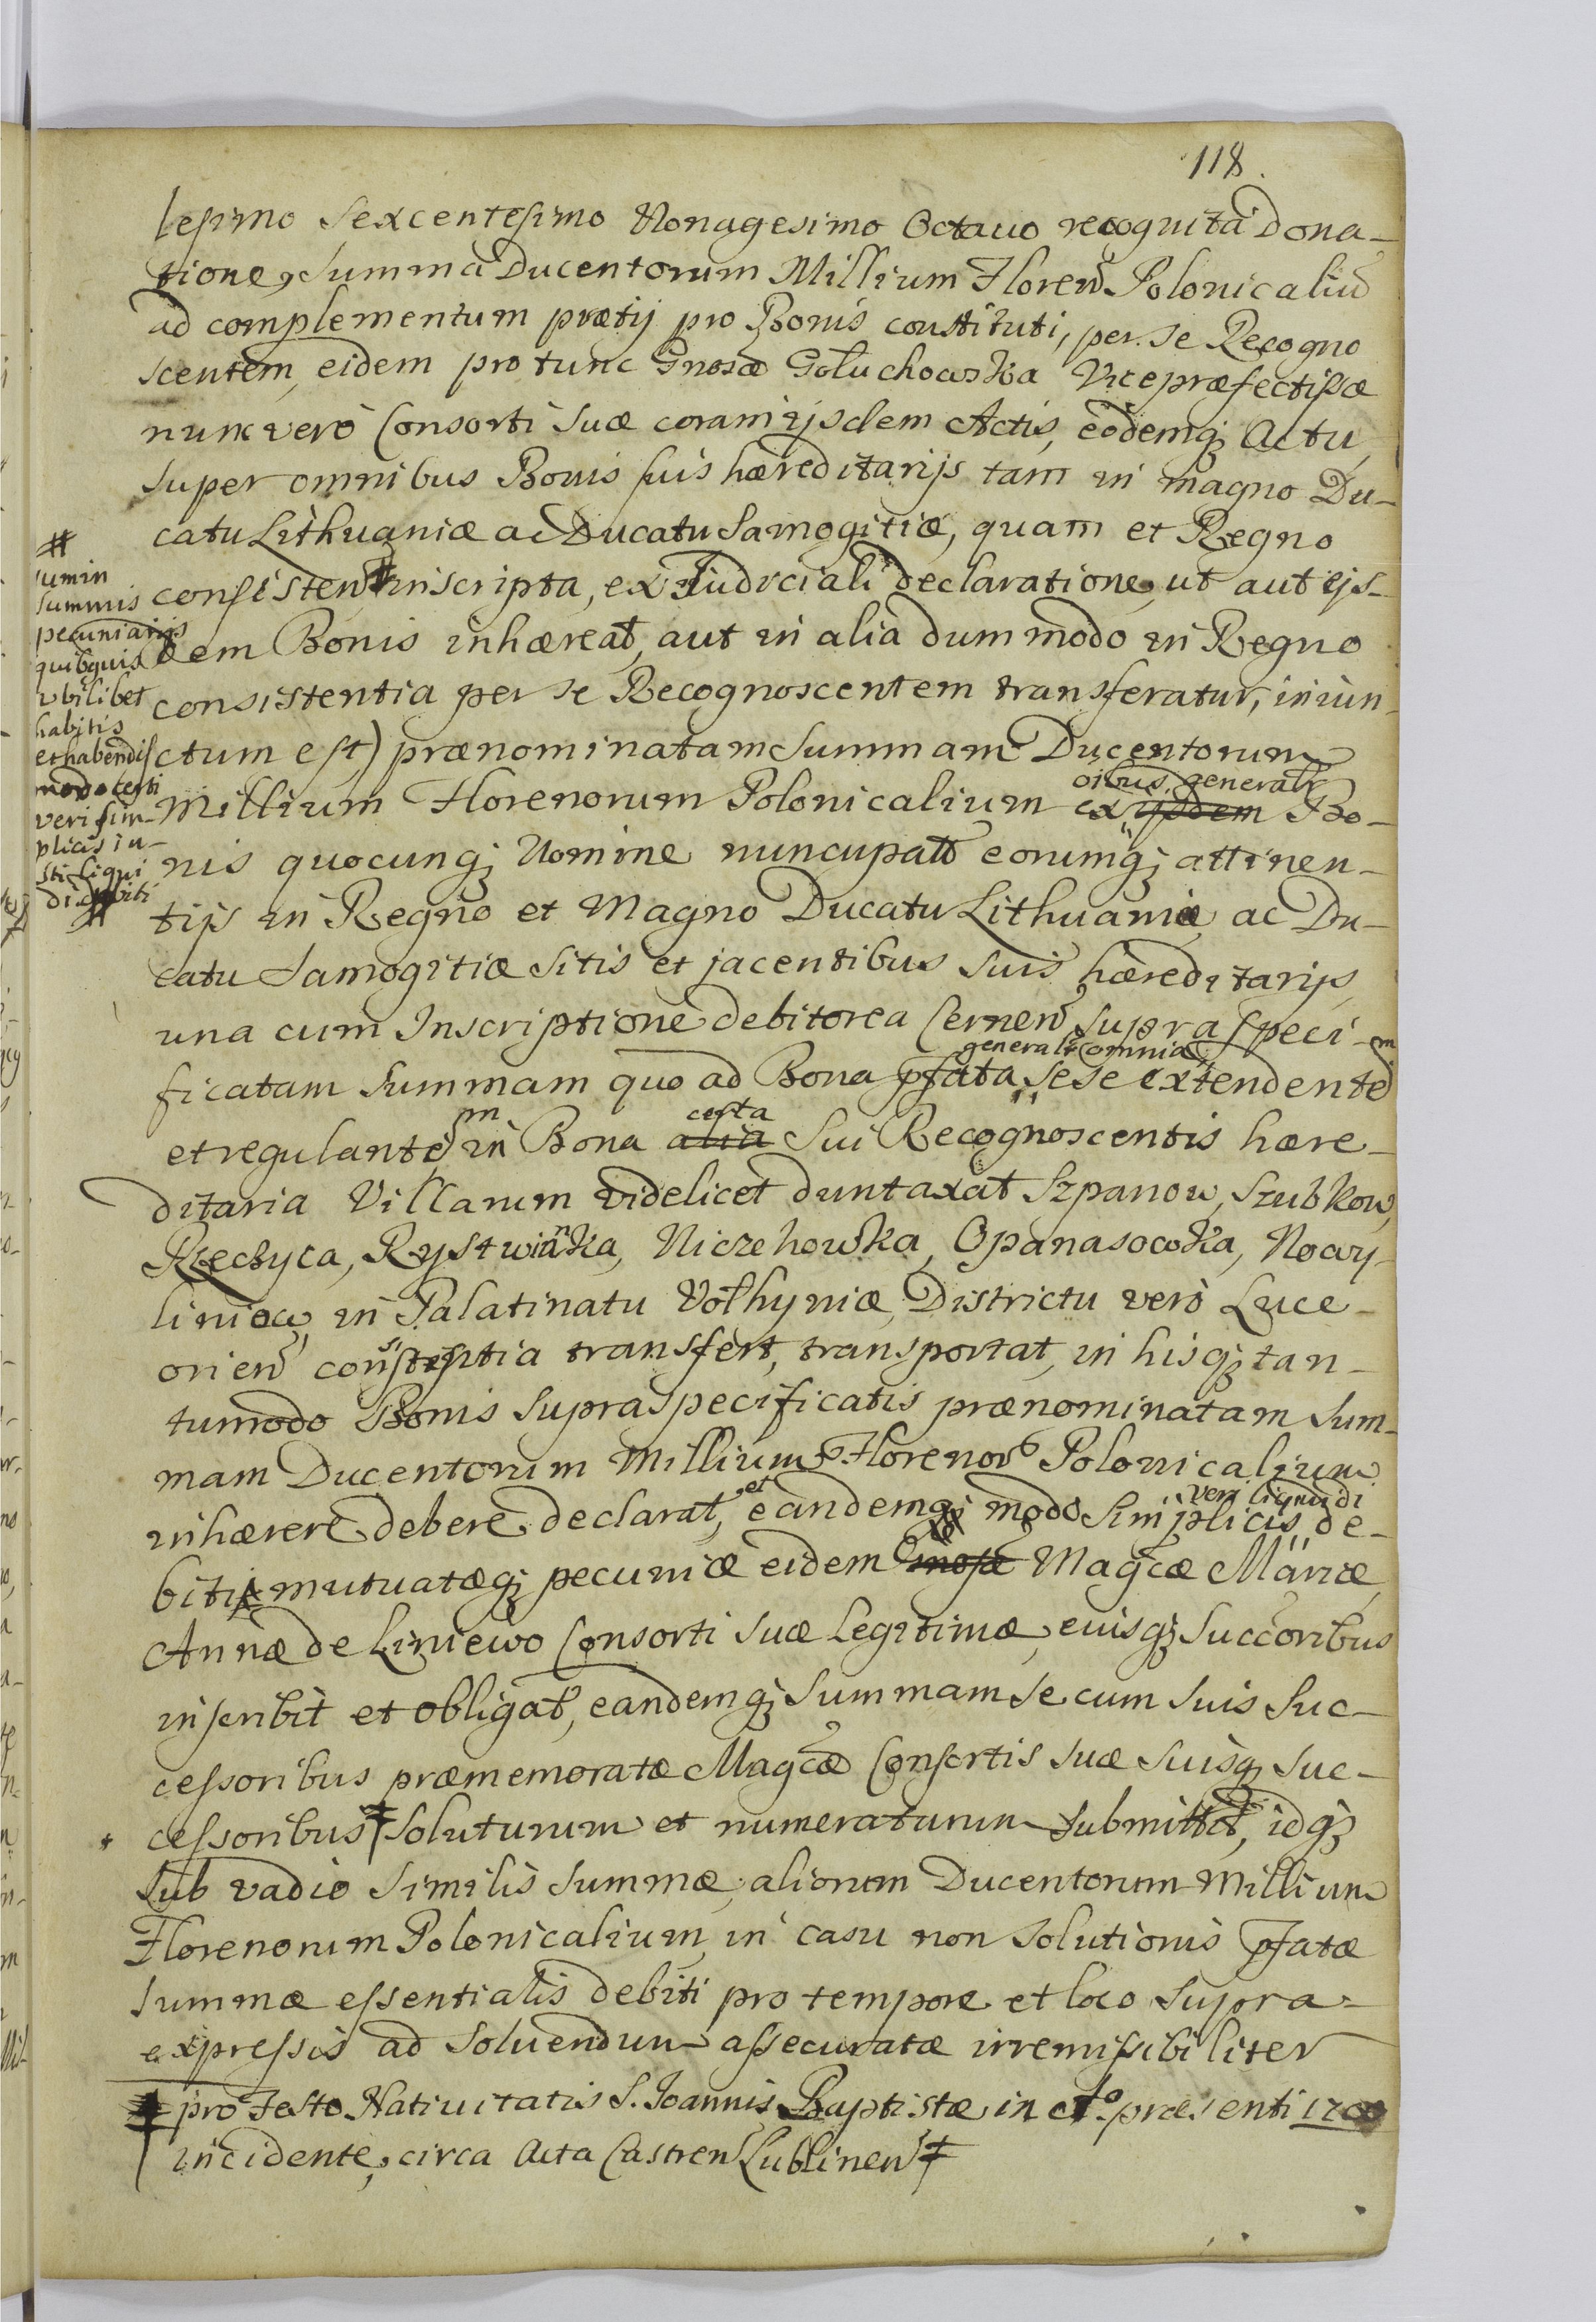 118.
lesimo Sexcentesimo Nonagesimo Octavo recognita Dona-
tione, Summa Ducentorum Millium Floren Polonicaliu
ad complementum prætij pro Bonis constituti, per se Recogno
scentem, eidem pro tunc Gnosæ Goluchowska Vicepræfectissæ
nunc verò Consorti suæ coram ijsdem Actis, eodemq; Actu,
super omnibus Bonis suis hæreditarijs tam in magno Du-
catu Lithuaniæ ac Ducatu Samogitiæ, quam et Regno
consisten # inscripta, ex Judiciali declaratione, ut aut ijs-
dem Bonis inhæreat, aut in alia dummodo in Regno
consistentia per se Recognoscentem transferatur, iniun-
ctum est) prænominatam Summam Ducentorum
oibus generalr
Millium Florenorum Polonicalium ex ijsdem Bo-
nis quocunq; Nomine nuncupatis eorumq; attinen-
tijs in Regno et Magno Ducatu Lithuaniæ, ac Du-
catu Samogitiæ sitis et jacentibus suis hæreditarijs,
una cum Inscriptione debitorea Cernen supra speci-
generalr omnia m
ficatam Summam quo ad Bona pfata sese extendente
m certa
et regulante in Bona alia Sui Recognoscentis hære-
ditaria Villarum videlicet duntaxat Szpanow, Szubkow,
Rzeczyca, Rystwianka, Niczehowka, Opanasowka, Nowy-
liniow, in Palatinatu Volhyniæ, Districtu verò Luce-
orien consistentia transfert, transportat, in hisq; tan-
tumodo Bonis supraspecificatis prænominatam Sum-
mam Ducentorum Millium Florenor Polonicalium
et veri liquidi
inhærere debere declarat, eandemq; modo Simplicis de-
biti mutuatæq; pecuniæ eidem Gnosæ Magcæ Mariæ
Annæ de Liniewo Consorti suæ Legitimæ, eiusq; Succoribus
inscribit et obligat, eandemq; Summam se cum suis Suc-
cessoribus præmemoratæ Magcæ Consortis suæ suisq; Suc-
cessoribus ‡ Soluturum et numeraturum submittit, idq;
sub vadio similis summæ, aliorum Ducentorum Millium
Florenorum Polonicalium, in casu non solutionis pfatæ
summæ essentialis debiti pro tempore et loco supra-
expressis ad solvendum assecuratæ irremissibiliter
‡ pro Festo Nativitatis S. Joannis Baptistæ in Ao præsenti 1700
incidente, circa Acta Castren Lublinen ‡
#
sumin
summis
pecuniarijs
quibquis
ubilibet
habitis
et habendis
modo certi
veri sim-
plicis iu-
sti liqui
di debiti
#